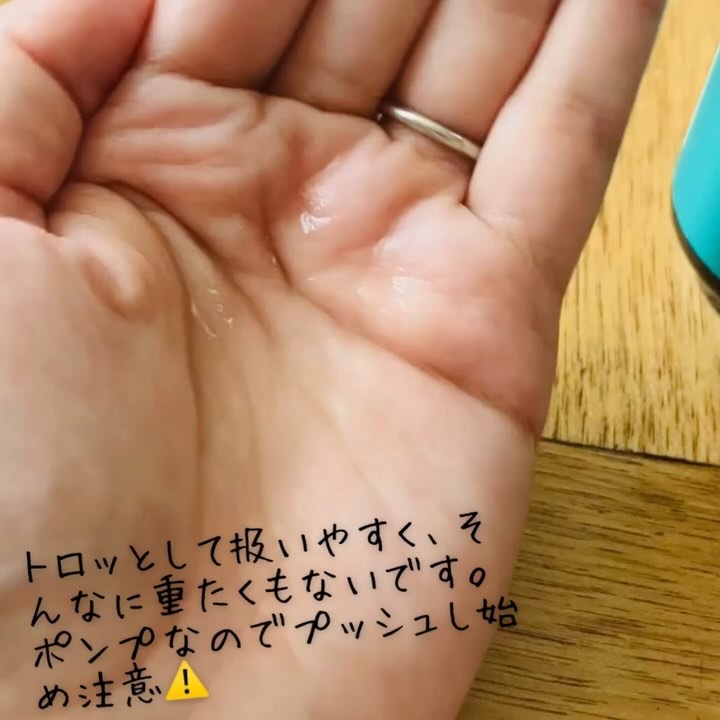 トロッとして扱いやすく、そ
んなに重たくもないです。
ポンプなのでプッシュし始
め注意⚠️